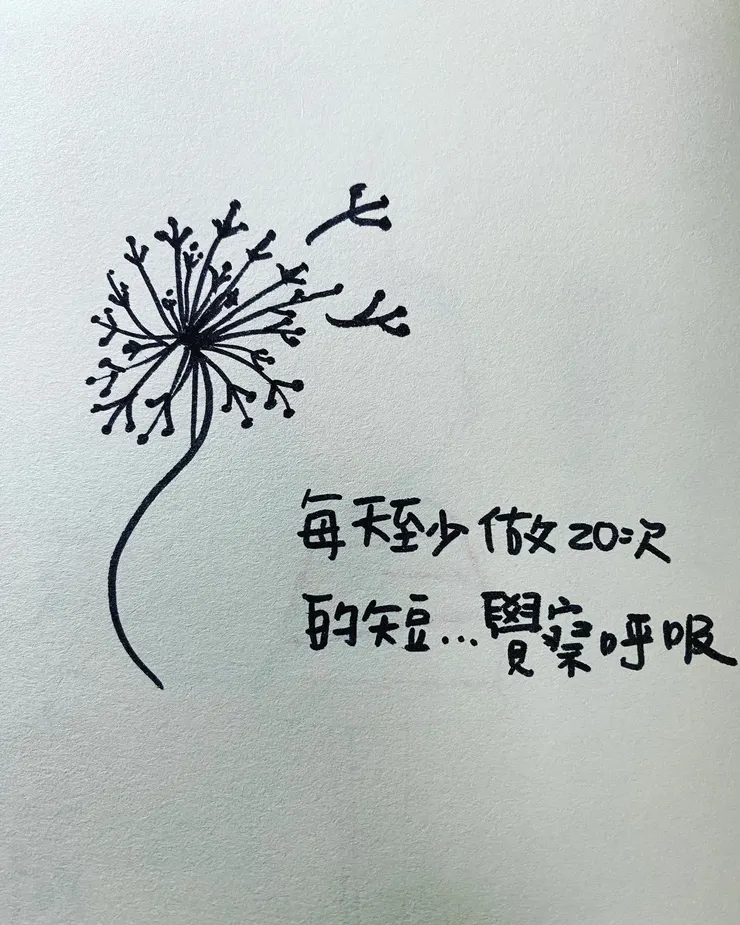 每天至少做20次
的短...覺察呼吸